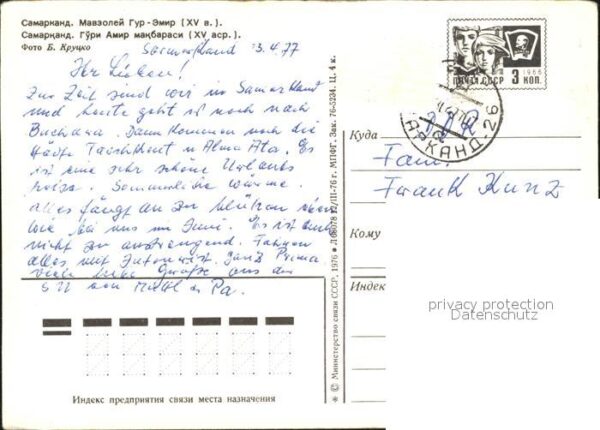 Самарканд. Мавзолей Гур-Эмир (XV в.).
Самарқанд. Гўри Амир мақбараси (XV аср.).
Фото Б. Круцко
Samarkand 3.4.77
Ihr Lieben!
Zur Zeit sind wir in Samarkand
und heute geht es noch nach
Buchara. Dann kommen noch die
Städte Taschkent u Alma Ata. Es
ist eine sehr schöne Urlaubs
reise. Sommerliche Wärme.
Alles fängt an zu blühen
wie bei uns im Juni. Es ist auch
nicht zu anstrengend. Fahren
alles mit Intourist. Ganz Prima
Viele liebe Grüße aus der
SU von
ПОЧТА СССР 1966
3 КОП.
АРКАНД-26
Куда DDR
Fam.
Frank Kunz
Кому
Индекс
privacy protection
Datenschutz
© Министерство связи СССР, 1976 • 12/III-76 г. МПФГ. Зак. 76-5234. Ц. 4 к.
Индекс предприятия связи места назначения